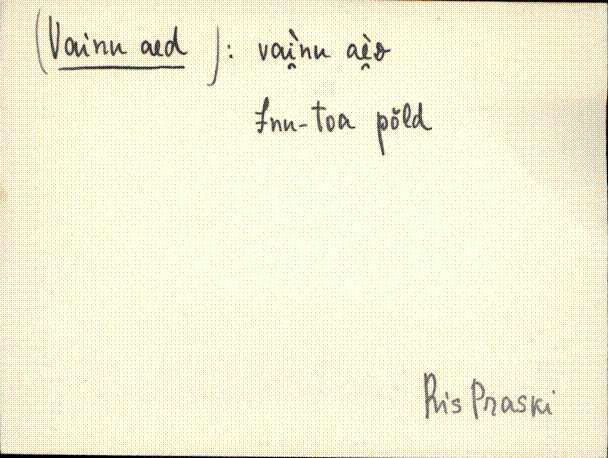 (Vainu aed): vaì̯nu aè̯ᴅ
Innu-toa põld
Ris Praski